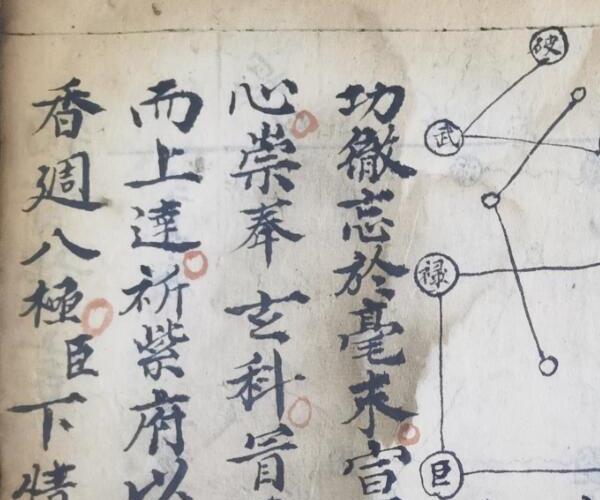 破
武
禄
巨
功徹忘於毫末宣
心崇奉玄科首
而上達祈紫府以
香週八極臣下情